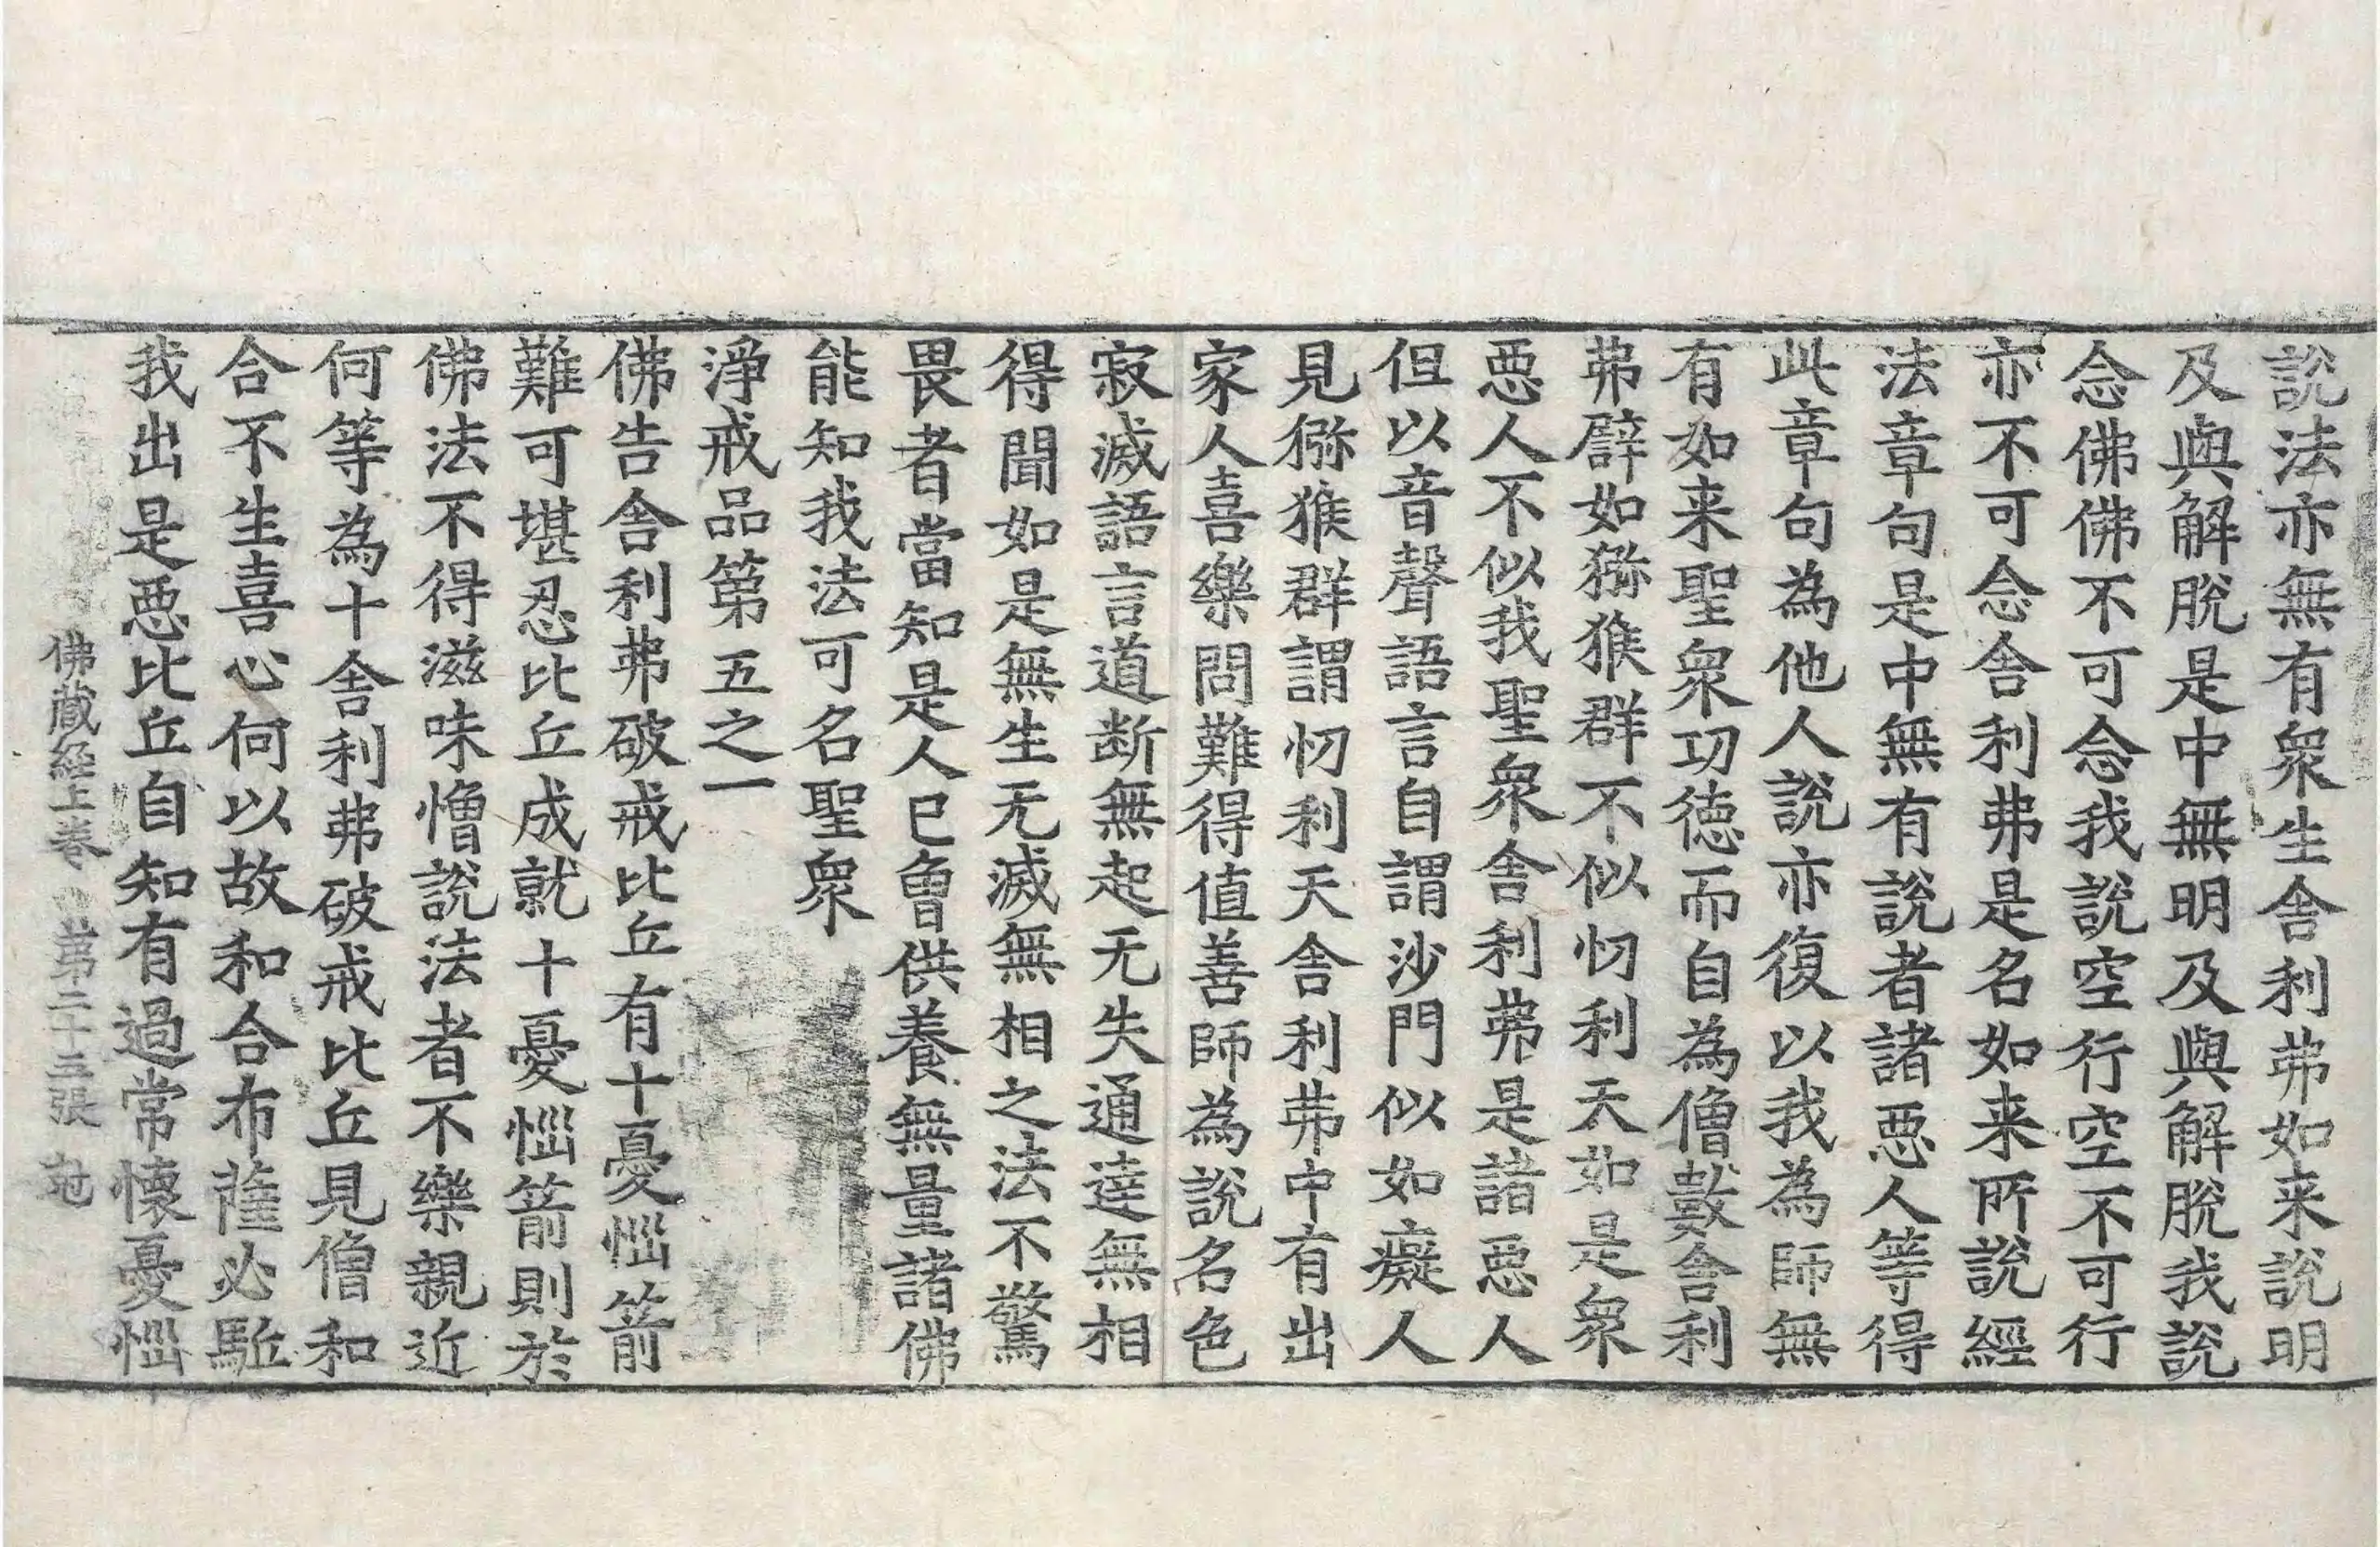 說法亦無有衆生舎利弗如来說明
及與解脫是中無明及與解脫我說
念佛佛不可念我說空行空不可行
亦不可念舎利弗是名如来所說經
法章句是中無有說者諸惡人等得
此章句為他人說亦復以我為師無
有如来聖衆功德而自為僧數舎利
弗譬如獼猴群不似忉利天如是衆
惡人不似我聖衆舎利弗是諸惡人
但以音聲語言自謂沙門似如癡人
見獼猴群謂忉利天舎利弗中有出
家人喜樂問難得值善師為說名色
寂滅語言道断無起无失通達無相
得聞如是無生无滅無相之法不驚
畏者當知是人已曾供養無量諸佛
能知我法可名聖衆
淨戒品第五之一
佛告舎利弗破戒比丘有十憂惱箭
難可堪忍比丘成就十憂惱箭則於
佛法不得滋味憎說法者不樂親近
何等為十舎利弗破戒比丘見僧和
合不生喜心何以故和合布薩必駈
我出是惡比丘自知有過常懐憂惱
佛蔵經上卷 第二十三張 冠